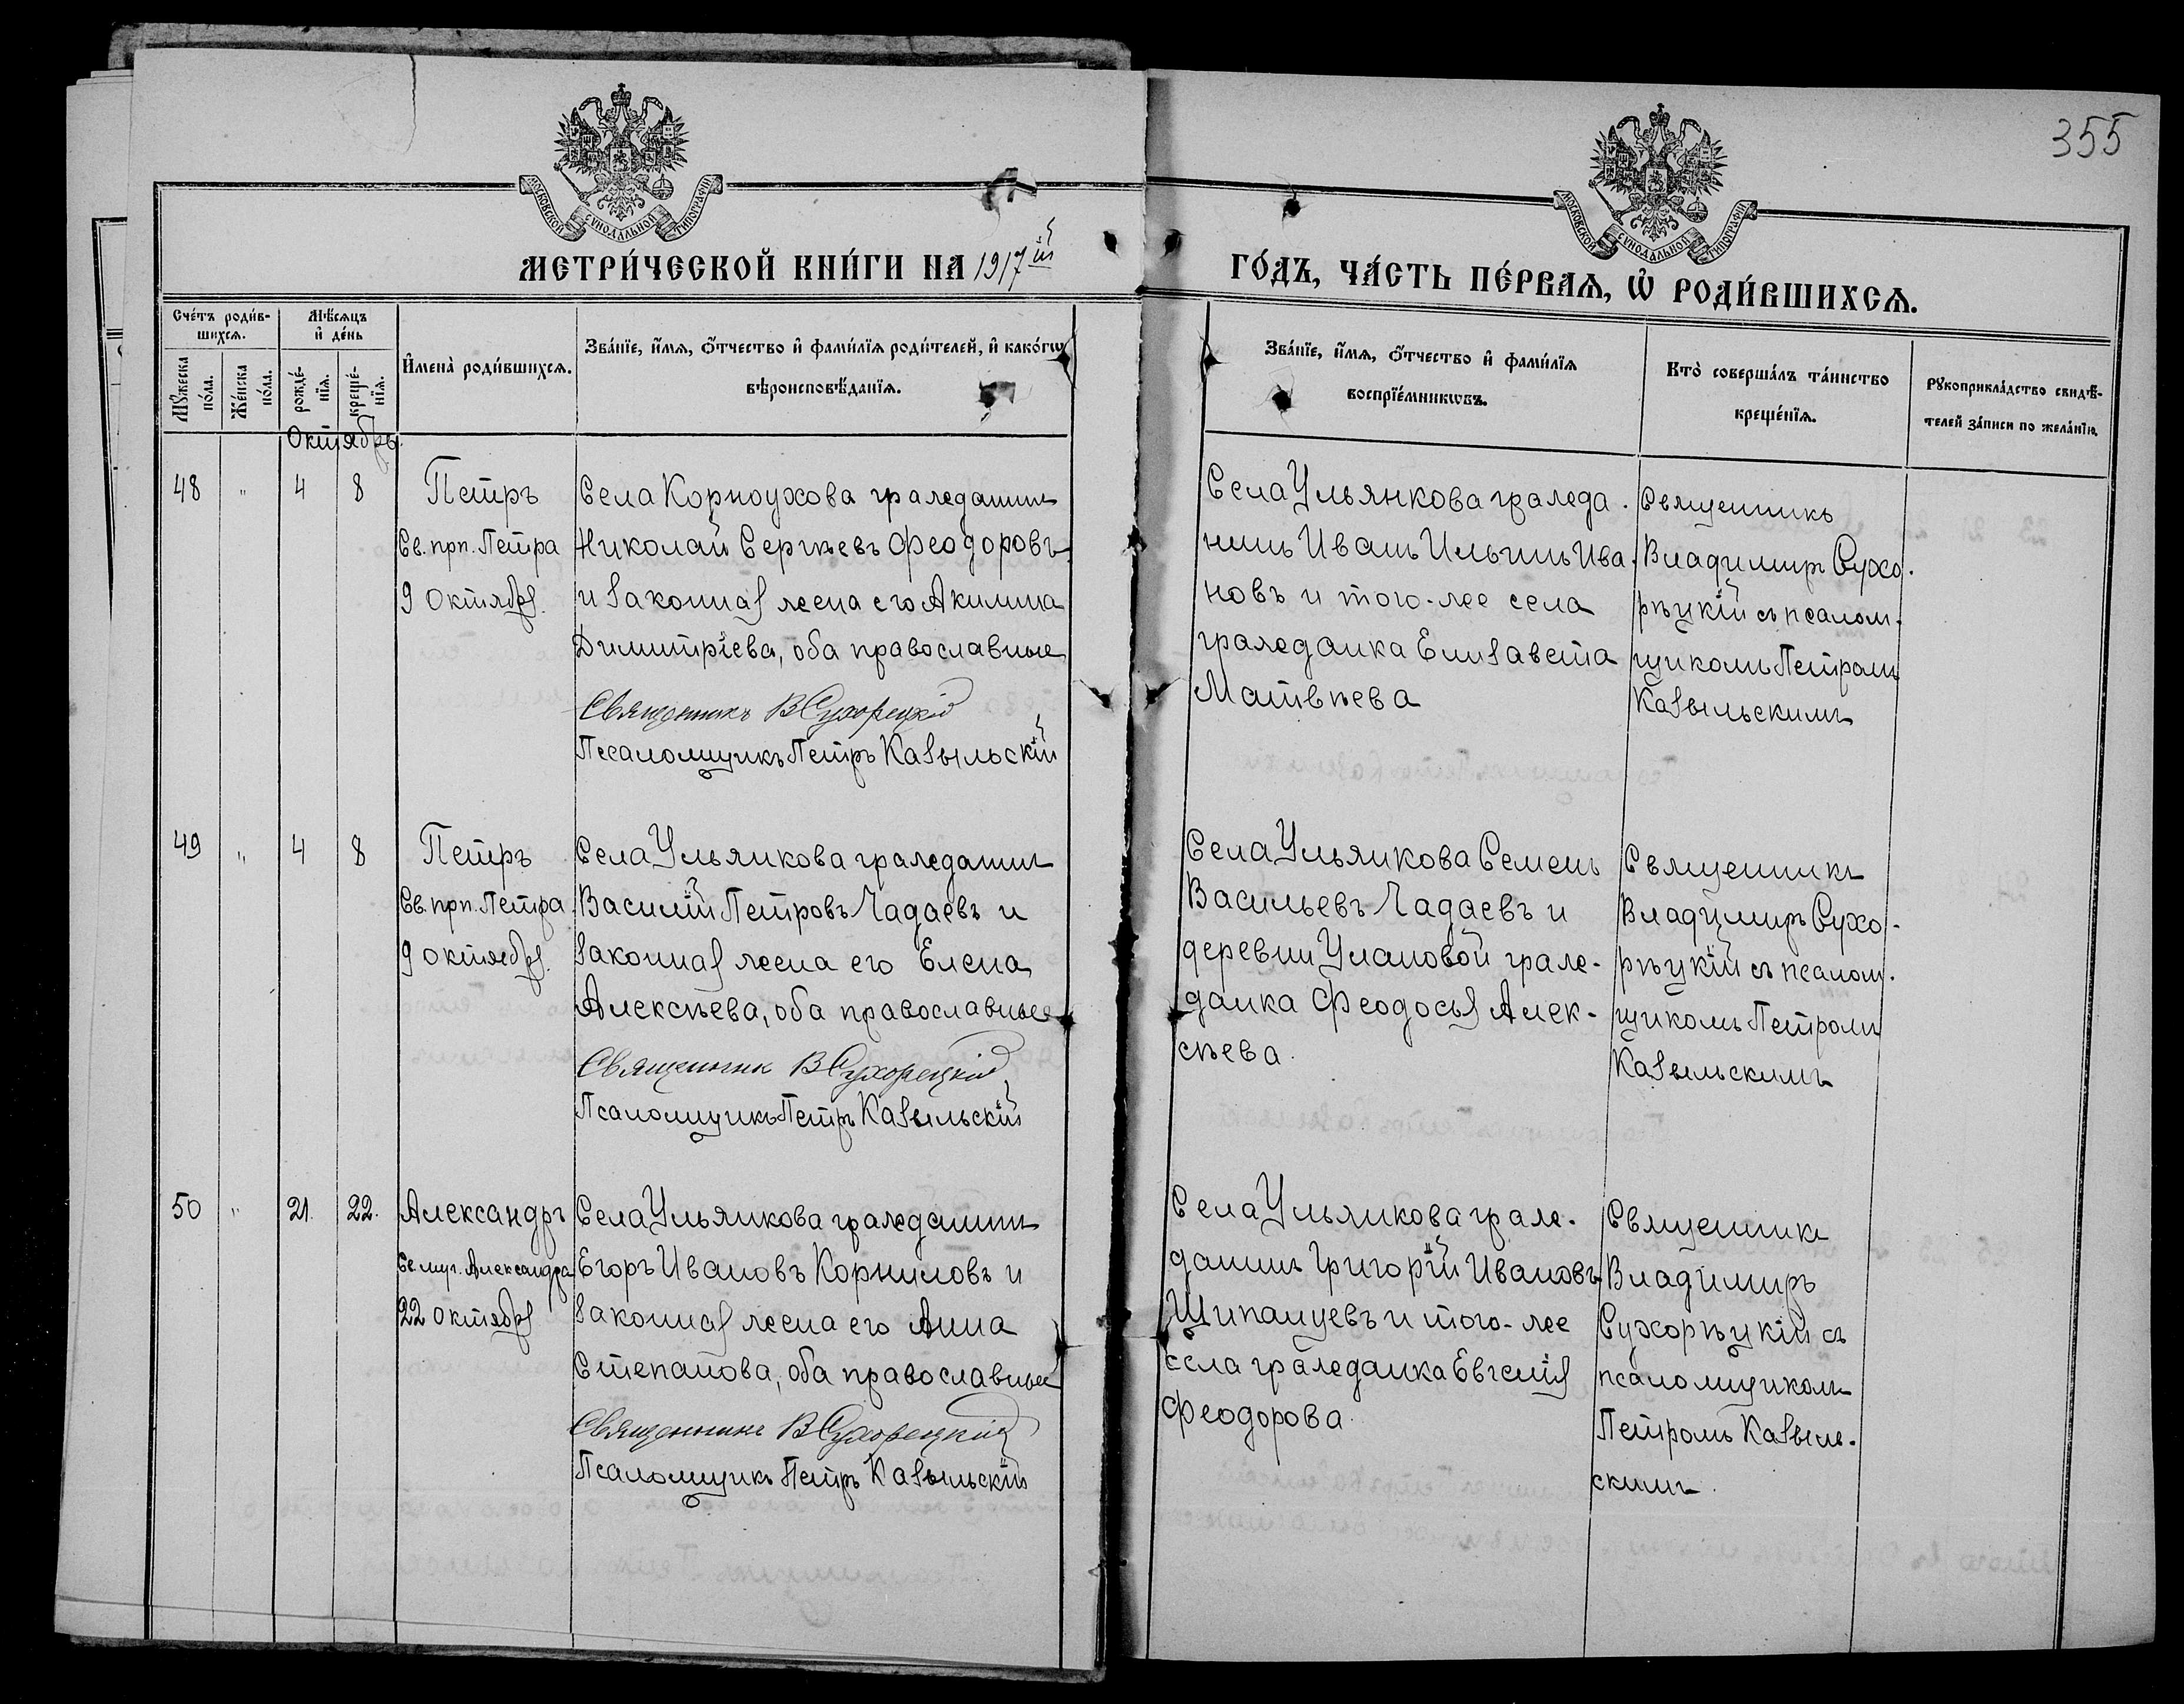 355
МОСКОВСКОЙ СѴНОДАЛЬНОЙ ТИПОГРАФІИ
МОСКОВСКОЙ СѴНОДАЛЬНОЙ ТИПОГРАФІИ
МЕТРИ́ЧЕСКОЙ КНИ́ГИ НА 1917ій
ГО́ДЪ, ЧА́СТЬ ПЕ́РВАѦ, Ѡ҆ РОДИ́ВШИХСѦ.
Сче́тъ роди́в-
шихсѧ.
Мꙋ́жеска по́ла.
Же́нска по́ла.
Мѣ́сѧцъ и҆ де́нь
рожде́-нїѧ.
креще́-нїѧ.
И҆мена̀ роди́вшихсѧ.
Зва́нїе, и҆́мѧ, ѻ҆́тчество и҆ фами́лїѧ роди́телей, и҆ како́гѡ
вѣроисповѣ́данїѧ.
Зва́нїе, и҆́мѧ, ѻ҆́тчество и҆ фами́лїѧ
воспрїе́мникѡвъ.
Кто̀ соверша́лъ та́инство
креще́нїѧ.
Рꙋкоприкла́дство свидѣ́-
телей за́писи по жела́нїю.
Октябрь
48 " 4 8
Петръ
Св. прп. Петра
9 Октября.
Села Корноухова гражданинъ
Николай Сергѣевъ Феодоровъ
и законная жена его Акилина
Димитріева, оба православные
Священникъ В Сухорецкій
Псаломщикъ Петръ Казыльскій
Села Ульянкова гражда-
нинъ Иванъ Ильинъ Ива-
новъ и того-же села
гражданка Елизавета
Матвѣева
Священникъ
Владимиръ Сухо-
рѣцкій съ псалом-
щикомъ Петромъ
Казыльскимъ
49 " 4 8
Петръ
Св. прп. Петра
9 октября.
Села Ульянкова гражданинъ
Василій Петровъ Чадаевъ и
законная жена его Елена
Алексѣева, оба православные
Священникъ В Сухорецкій
Псаломщикъ Петръ Казыльскій
Села Ульянкова Семенъ
Васильевъ Чадаевъ и
деревни Улановой граж-
данка Феодосья Алек-
сѣева.
Священникъ
Владимиръ Сухо-
рѣцкій съ псалом-
щикомъ Петромъ
Казыльскимъ
50 " 21. 22.
Александръ
Св. муч. Александра
22 октября
Села Ульянкова гражданинъ
Егоръ Ивановъ Корниловъ и
законная жена его Анна
Степанова, оба православные
Священникъ В Сухорецкій
Псаломщикъ Петръ Казыльскій
Села Ульянкова граж-
данинъ Григорій Ивановъ
Щипанцевъ и того-же
села гражданка Евгенія
Феодорова.
Священникъ
Владимиръ
Сухорѣцкій съ
псаломщикомъ
Петромъ Казыль-
скимъ.